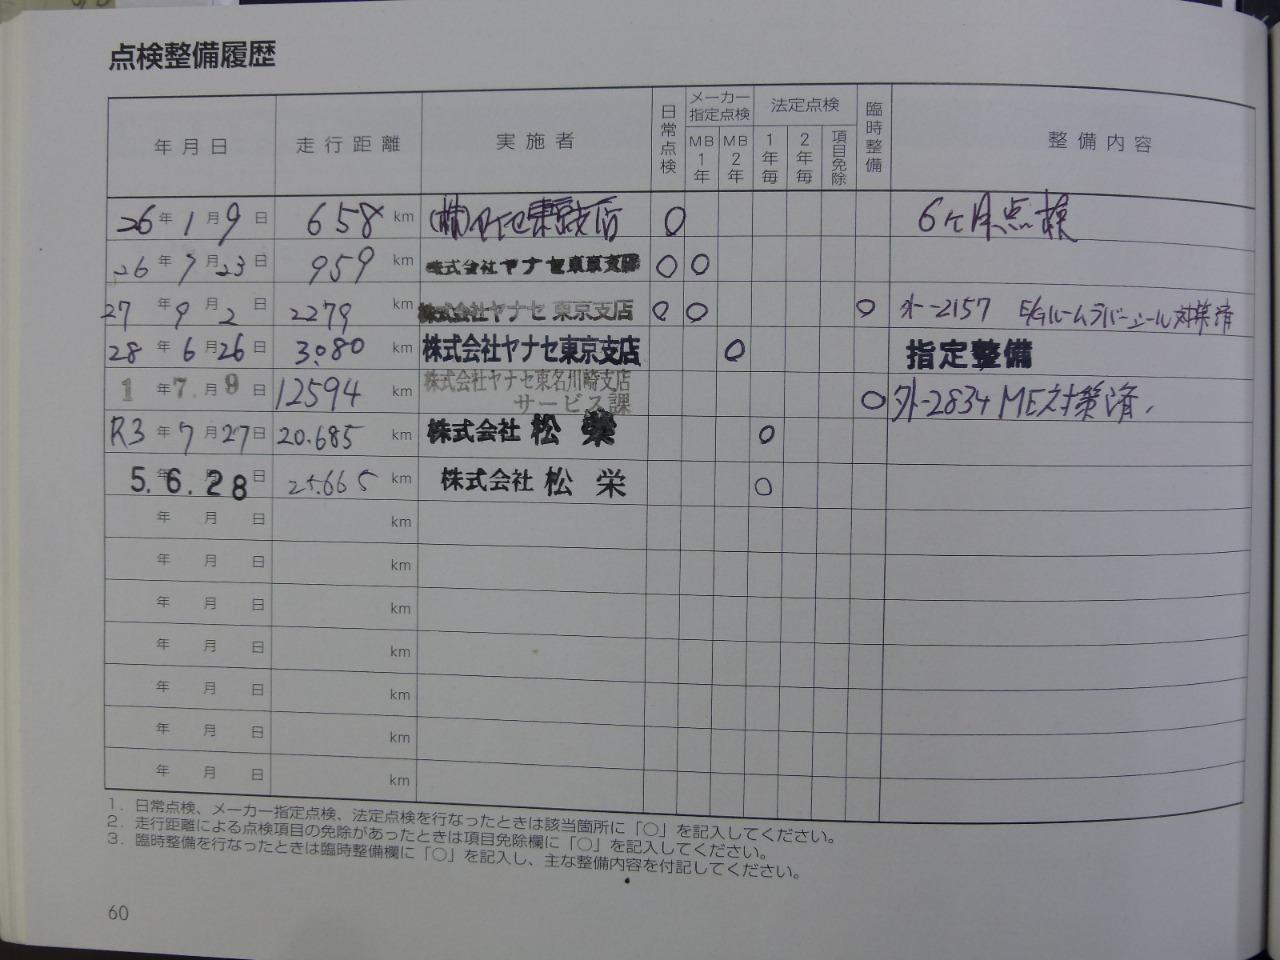 点検整備履歴
年月日 走行距離 実施者 日常点検 メーカー指定点検 MB1年 MB2年 法定点検 1年毎 2年毎 項目免除 臨時整備 整備内容
26年1月9日 658km (株)ヤナセ東京支店 ○ 6ヶ月点検
26年7月23日 959km 株式会社ヤナセ東京支店 ○ ○
27年9月2日 2279km 株式会社ヤナセ東京支店 ○ ○ ○ 外-2157 E/Gルームラバーシール対策済
28年6月26日 3080km 株式会社ヤナセ東京支店 ○ 指定整備
1年7.月9日 12594km 株式会社ヤナセ東名川崎支店
サービス課 ○ 外-2834 ME対策済.
R3年7月27日 20.685km 株式会社 松栄 ○
5.年6.月28日 25.665km 株式会社 松栄 ○
年月日 km
年月日 km
年月日 km
年月日 km
年月日 km
年月日 km
年月日 km
1. 日常点検、メーカー指定点検、法定点検を行なったときは該当箇所に「○」を記入してください。
2. 走行距離による点検項目の免除があったときは項目免除欄に「○」を記入してください。
3. 臨時整備を行なったときは臨時整備欄に「○」を記入し、主な整備内容を付記してください。
60